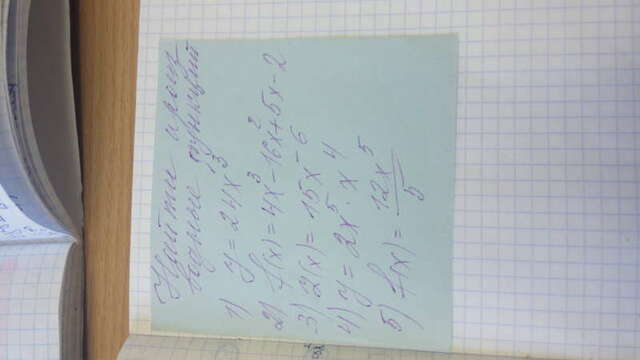 Найти произ
водные функций
1) y = 24x¹³
2) f(x) = 4x³ - 16x² + 5x - 2
3) z(x) = 15x⁻⁶
4) y = 2x⁵ · x⁴
5) f(x) = 12x⁵/5